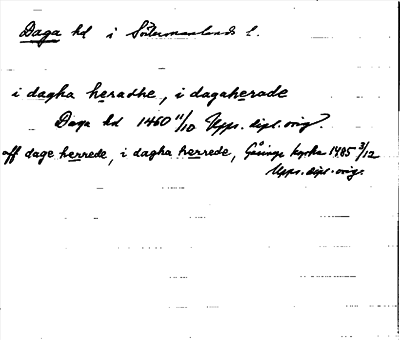 Daga hd i Södermanlands l.
i dagha heradhe, i dagaherade
Daga hd 1460 11/10 Upps. dipl. orig.
aff dage herrede, i dagha herrede, Gåsinge kyrka 1485 3/12
Upps. dipl. orig.